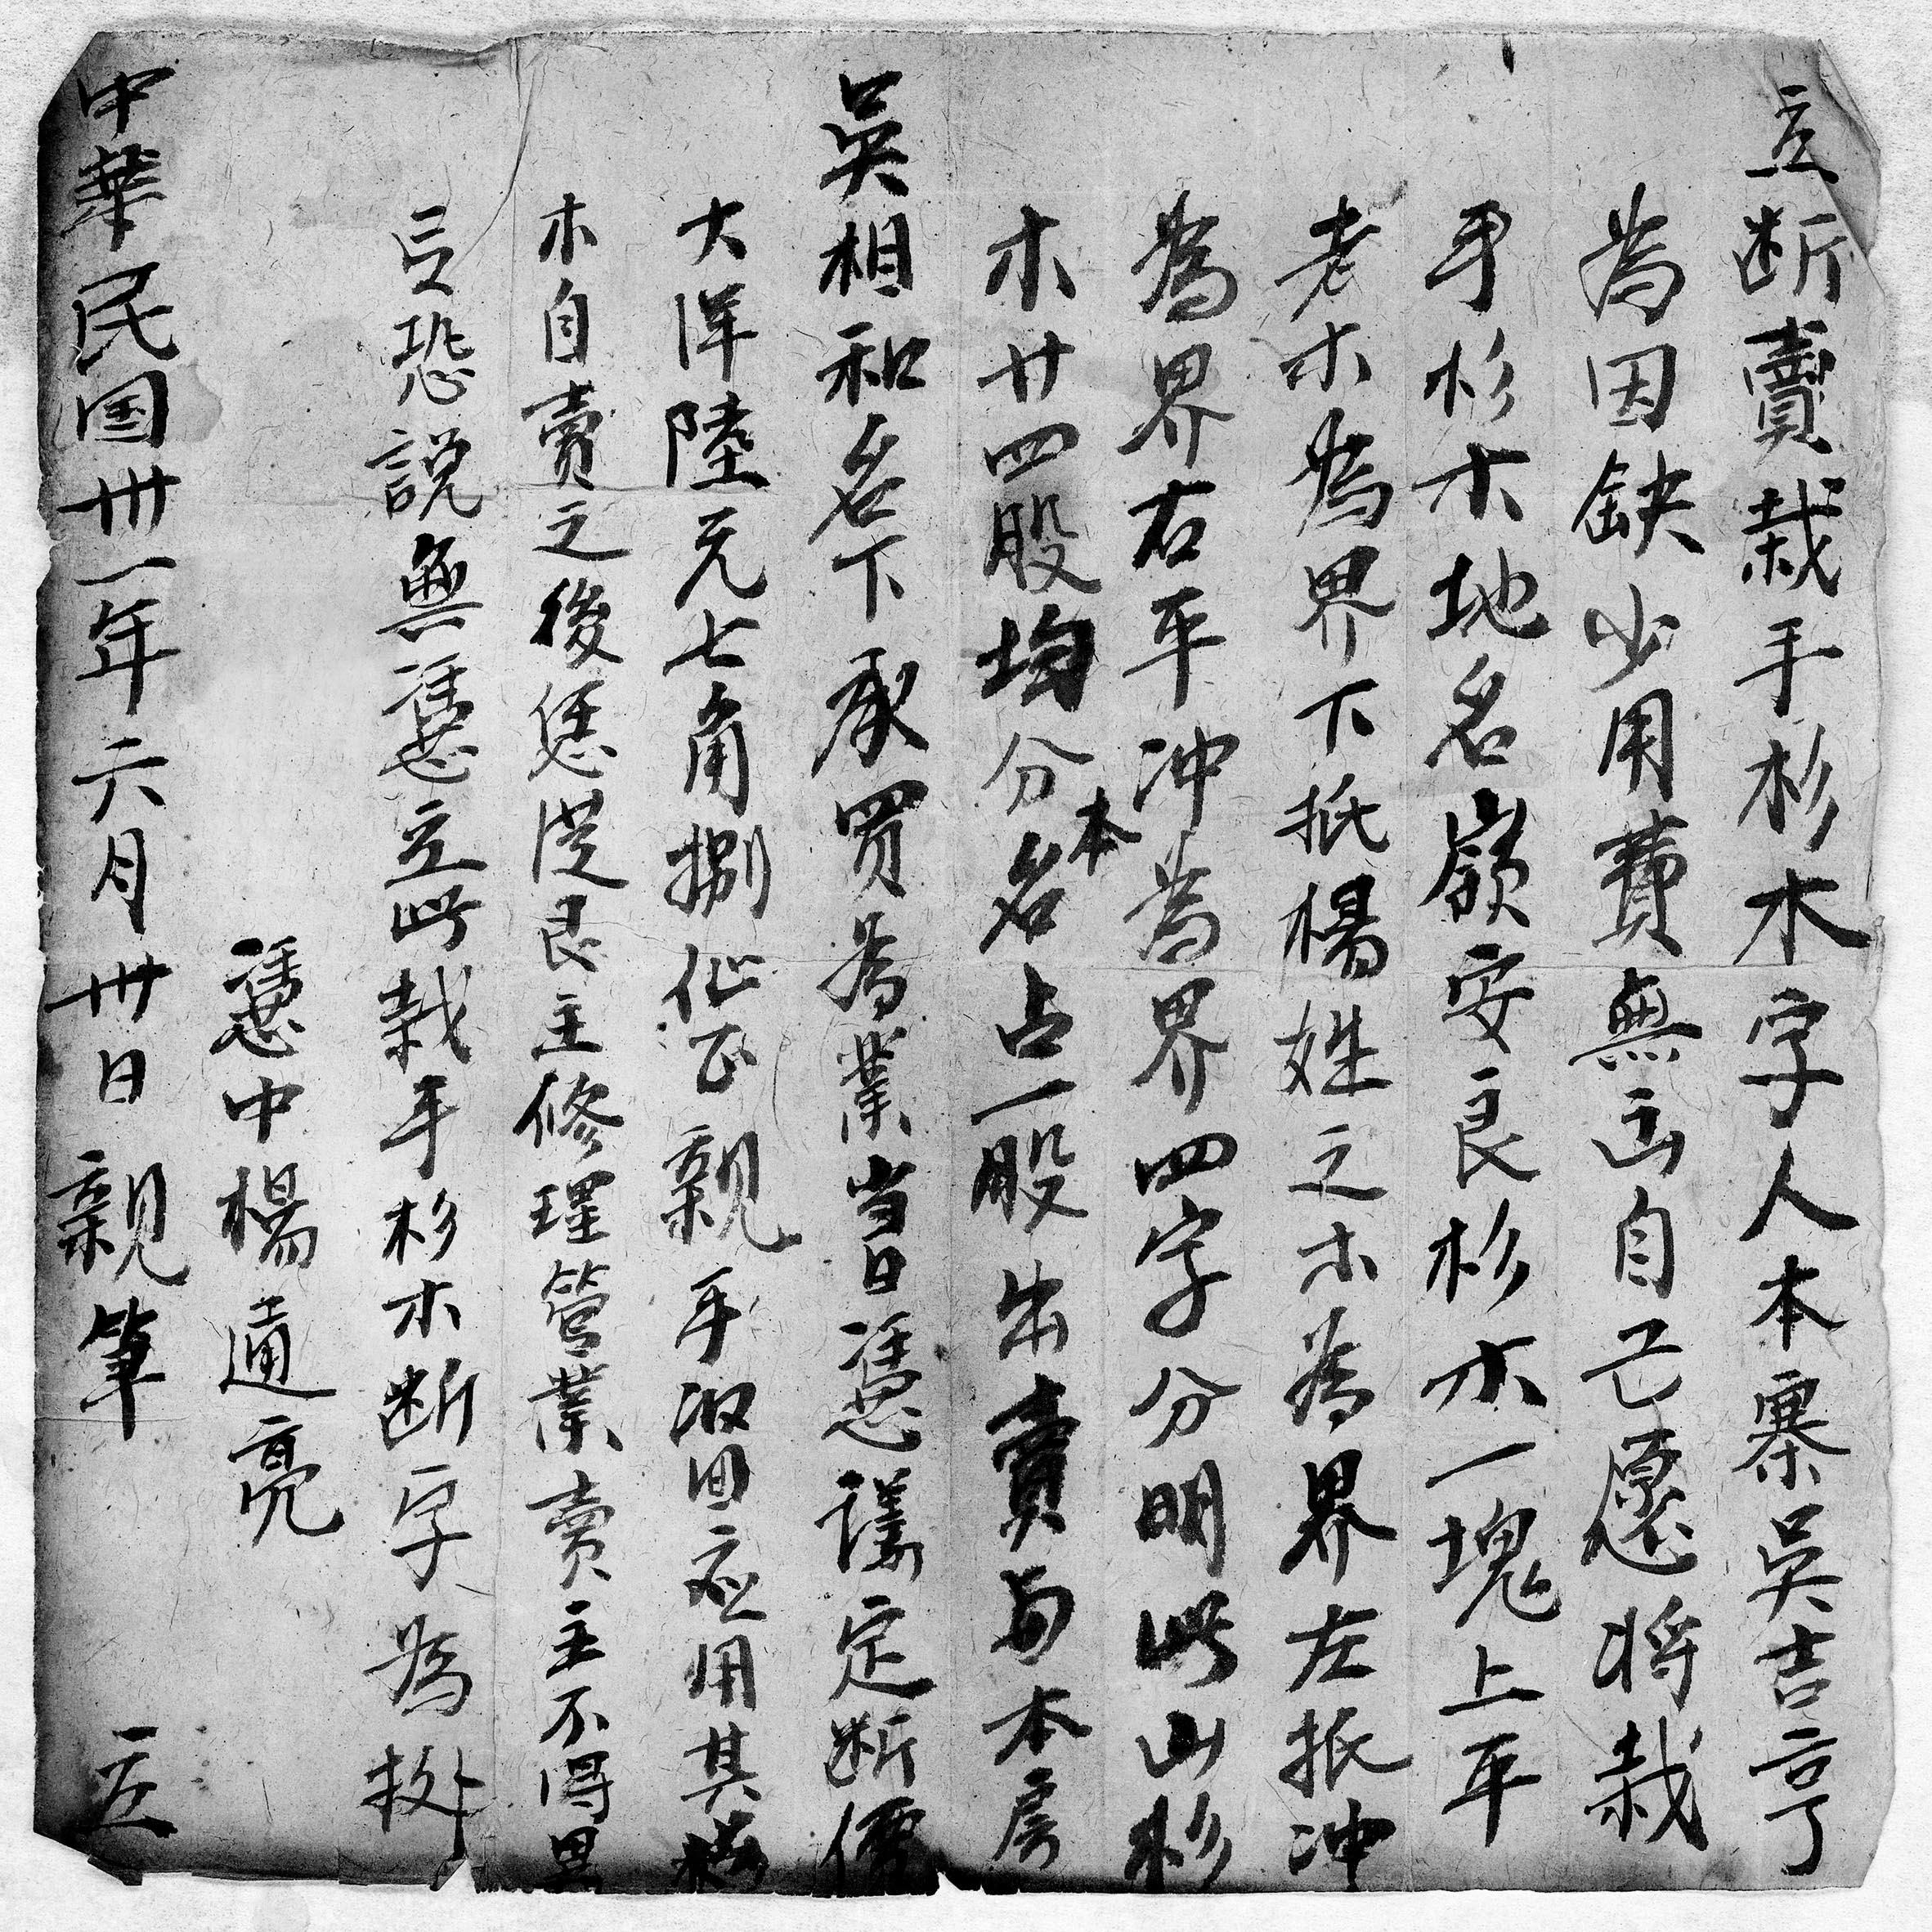 立断賣栽手杉木字人本寨吴吉亨
為因缺少用費無出自己愿将栽
手杉木地名嶺安良杉木一塊上平
老木為界下抵楊姓之木為界左抵冲
為界右平冲為界四字分明此山杉
木廿四股均分本名占一股出賣与本房
吴相和名下承買為業当日憑議定断價
大洋陸元七角捌仙正親手収回应用其杉
木自賣之後恁従買主修理管業賣主不得異
言恐説無憑立此栽手杉木断字為拠
憑中楊通亮
中華民国卅一年六月卅日親筆 立